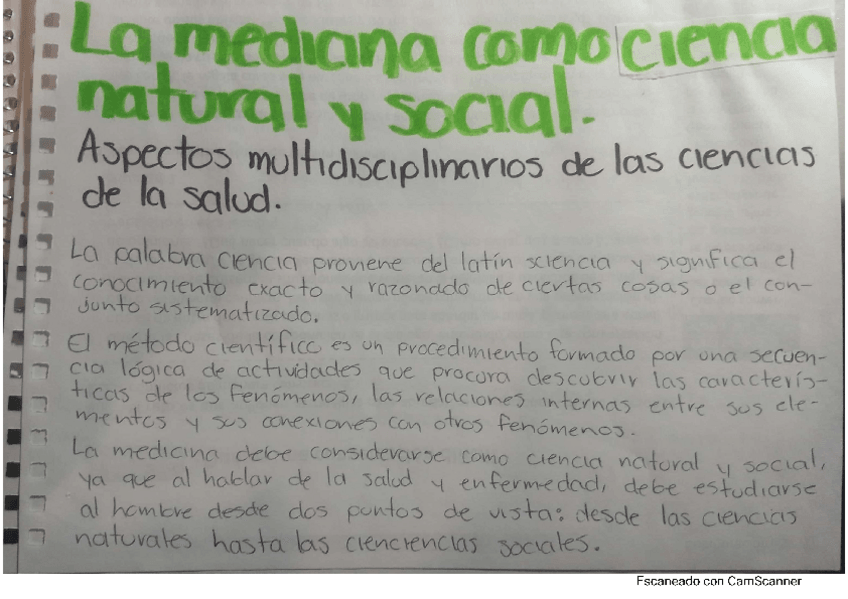 La mediana como ciencia
natural y social.
Aspectos multidisciplinarios de las ciencias
de la salud.
La palabra ciencia proviene del latín sciencia y significa el
conocimiento exacto y razonado de ciertas cosas o el con-
junto sistematizado.
El método científico es un procedimiento formado por una secuen-
cia lógica de actividades que procura descubrir las caracterís-
ticas de los fenómenos, las relaciones internas entre sus ele-
mentos y sus conexiones con otros fenómenos.
La medicina debe considerarse como ciencia natural y social,
ya que al hablar de la salud y enfermedad, debe estudiarse
al hombre desde dos puntos de vista: desde las ciencias
naturales hasta las cienciencias sociales.
Escaneado con CamScanner